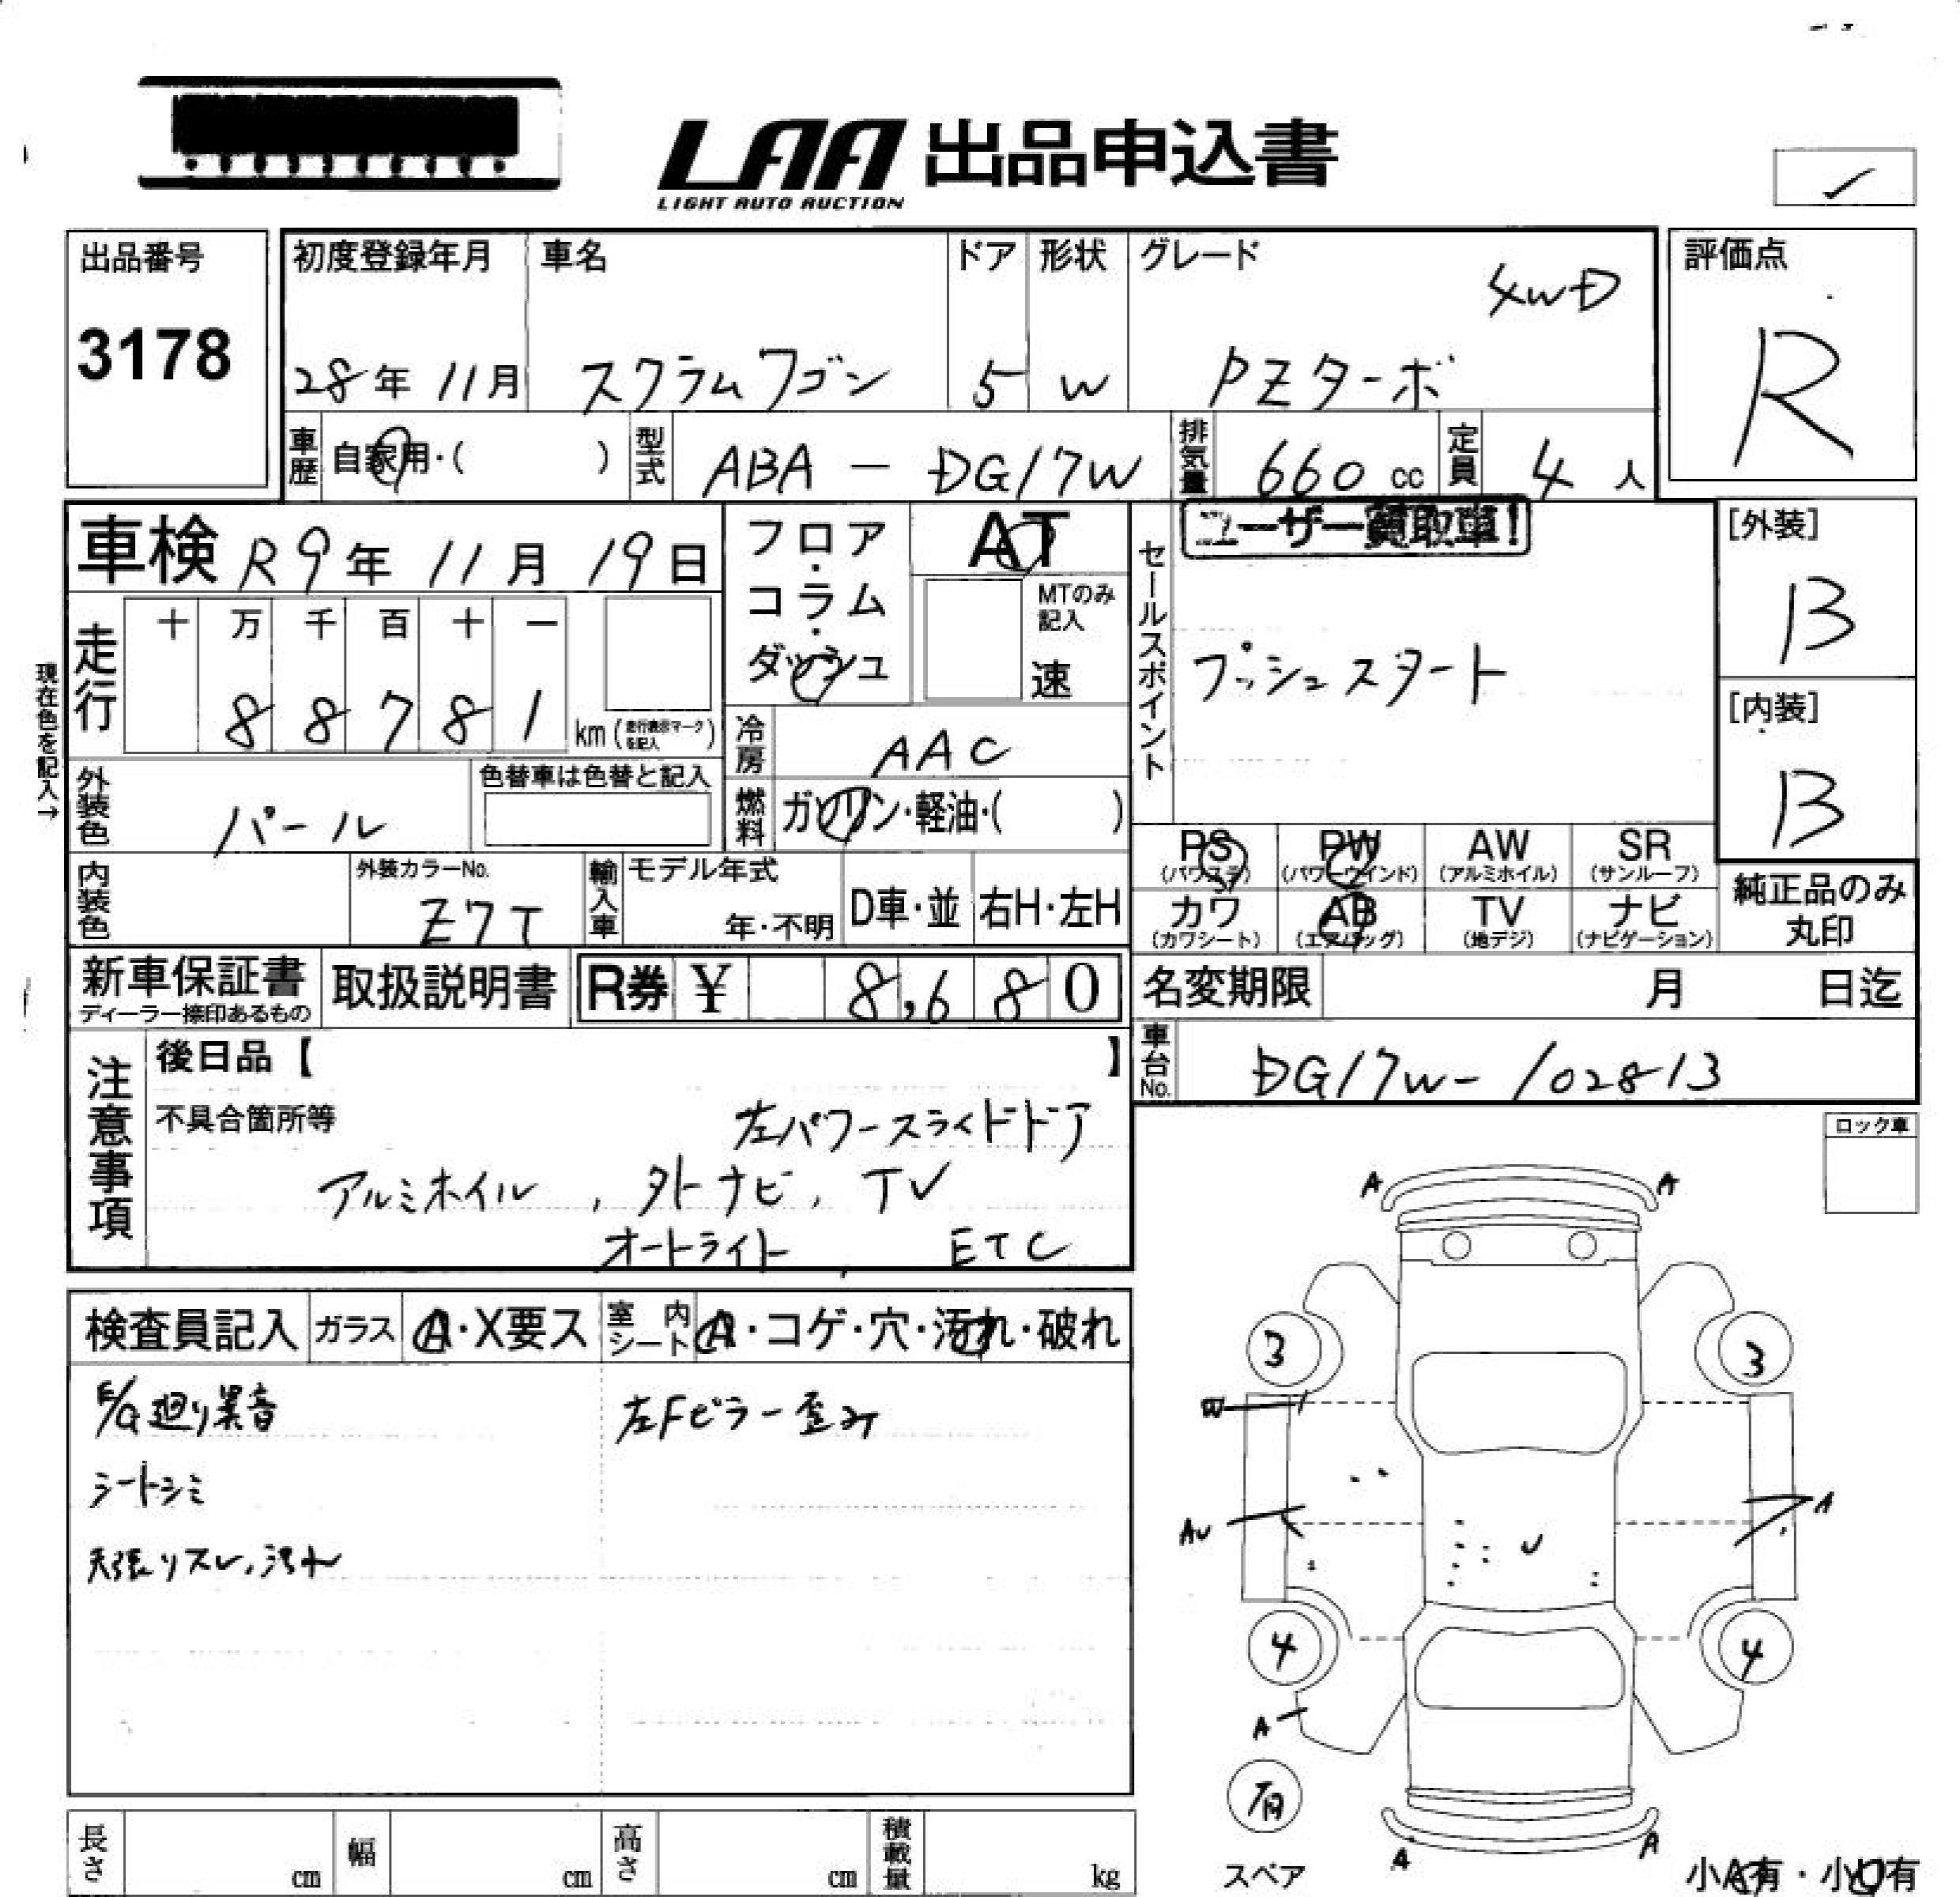 LAA 出品申込書
LIGHT AUTO AUCTION
出品番号
3178
初度登録年月
28年 11月
車名
スクラムワゴン
ドア
5
形状
W
グレード
4WD
PZターボ
評価点
R
車歴 自家用・( )
型式 ABA - DG17W
排気量 660 cc
定員 4 人
車検 R9年 11月 19日
フロア・コラム・ダッシュ
AT
MTのみ記入
速
セールスポイント
ユーザー買取車!
プッシュスタート
[外装]
B
[内装]
B
現在色を記入→
走行
十 万 千 百 十 一
8 8 7 8 1 km (走行表示マークを記入)
冷房 AAC
燃料 ガソリン・軽油・( )
外装色 パール
色替車は色替と記入
内装色
外装カラーNo.
Z7T
輸入車
モデル年式
年・不明
D車・並
右H・左H
PS (パワステ)
PW (パワーウインド)
AW (アルミホイル)
SR (サンルーフ)
カワ (カワシート)
AB (エアバッグ)
TV (地デジ)
ナビ (ナビゲーション)
純正品のみ丸印
新車保証書
ディーラー捺印あるもの
取扱説明書
R券 ¥ 8,680
名変期限 月 日迄
車台No. DG17W-102813
注意事項
後日品【 】
不具合箇所等
左パワースライドドア
アルミホイル , 外ナビ, TV
オートライト , ETC
ロック車
検査員記入
ガラス A・X要ス
室内シート A・コゲ・穴・汚れ・破れ
E/G廻り異音
左Fピラー歪み
シートシミ
天張りスレ,汚れ
A A
3 3
W
AU
A
U
4 4
A
有
スペア
A A
小A有・小U有
長さ cm
幅 cm
高さ cm
積載量 kg